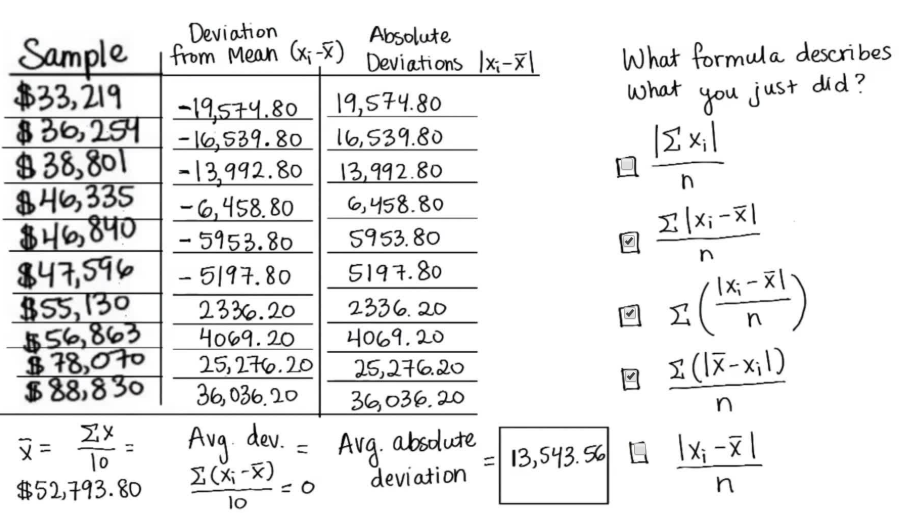 Sample | Deviation from Mean (xᵢ-x̄) | Absolute Deviations |xᵢ-x̄|
$33,219 | -19,574.80 | 19,574.80
$36,254 | -16,539.80 | 16,539.80
$38,801 | -13,992.80 | 13,992.80
$46,335 | -6,458.80 | 6,458.80
$46,840 | -5953.80 | 5953.80
$47,596 | -5197.80 | 5197.80
$55,130 | 2336.20 | 2336.20
$56,863 | 4069.20 | 4069.20
$78,070 | 25,276.20 | 25,276.20
$88,830 | 36,036.20 | 36,036.20
x̄ = Σx / 10 =
$52,793.80
Avg. dev. =
Σ(xᵢ-x̄) / 10 = 0
Avg. absolute
deviation = 13,543.56
What formula describes
what you just did?
|Σ xᵢ| / n
Σ |xᵢ - x̄| / n
Σ ( |xᵢ - x̄| / n )
Σ (|x̄ - xᵢ|) / n
|xᵢ - x̄| / n